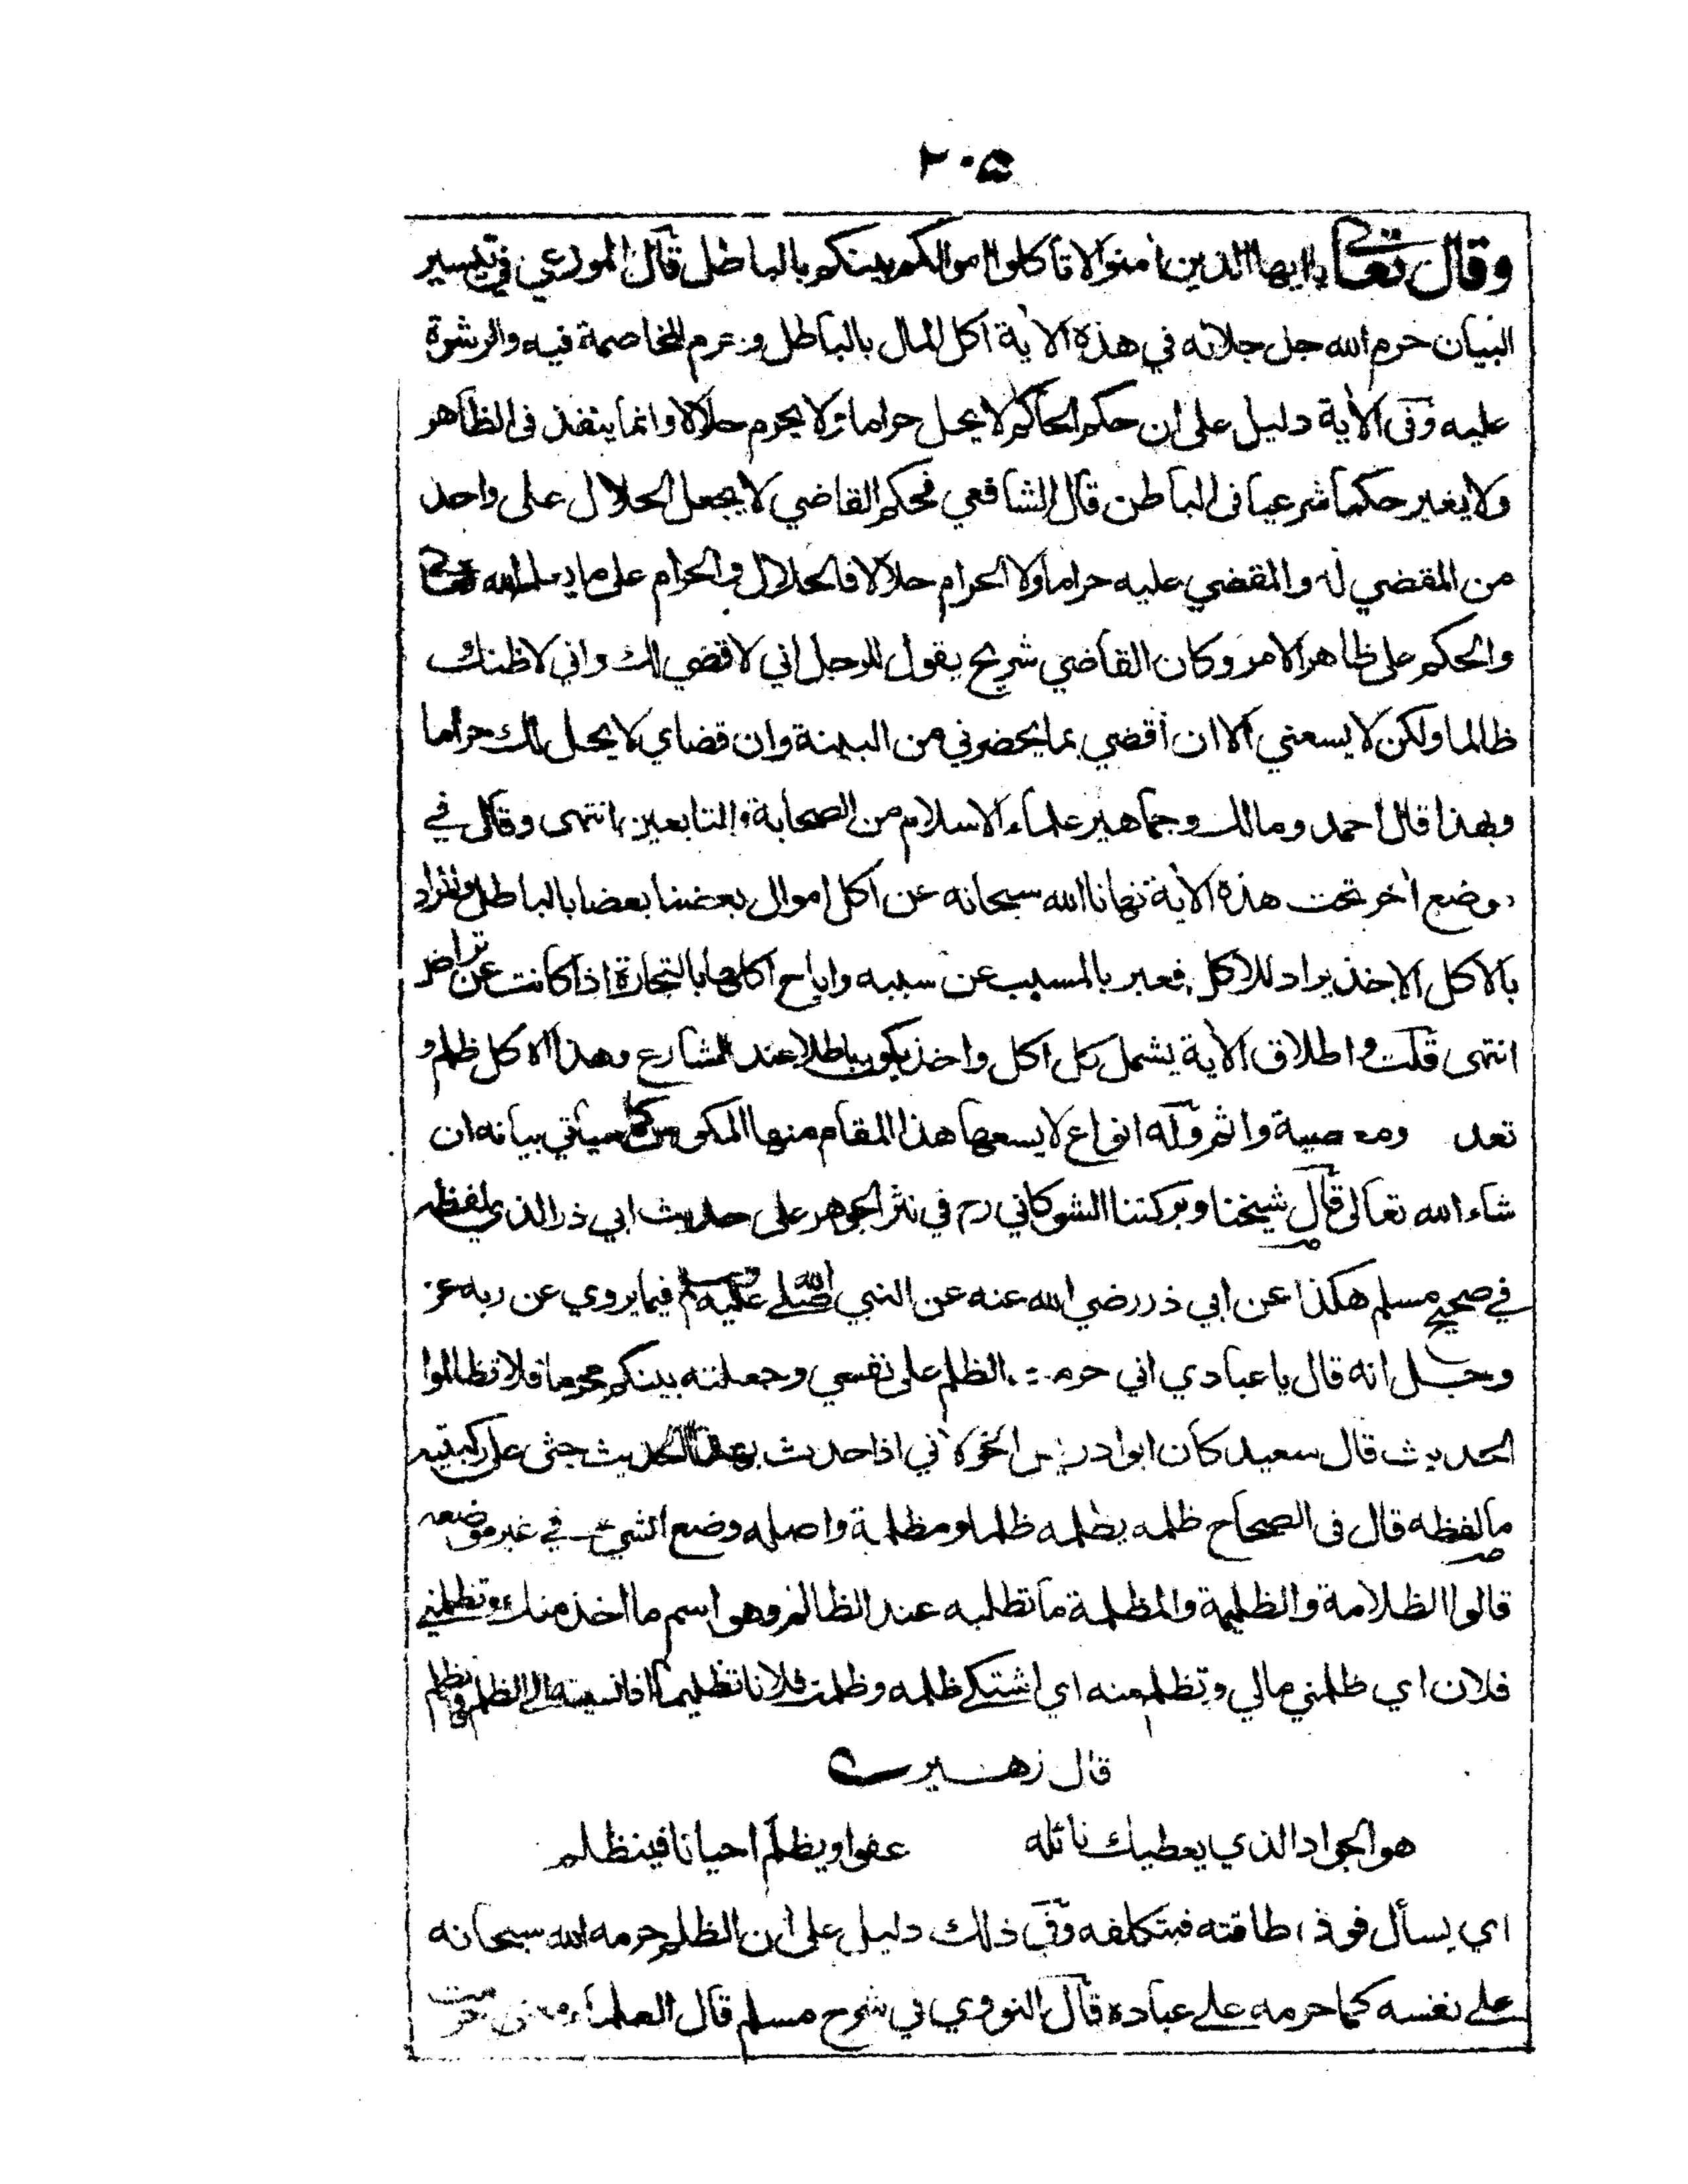 ٢٠٥
وقال تعالى يا ايها الذين اٰمنوا لا تأكلوا اموالكم بينكم بالباطل قال الموزعي في تيسير
البيان حرم الله جل جلاله في هذه الاٰية اكل المال بالباطل وحرم المخاصمة فيه والرشوة
عليه وفى الاٰية دليل على ان حكم الحاكم لا يحل حراما ولا يحرم حلالا وانما ينفذ فى الظاهر
ولا يغير حكما شرعيا فى الباطن قال الشافعي فحكم القاضي لا يجعل الحلال على واحد
من المقضي له والمقضي عليه حراما ولا الحرام حلالا فالحلال والحرام على ما يعلم الله تعالى
والحكم على ظاهر الامر وكان القاضي شريح يقول للرجل اني لاقضي لك واني لاظنك
ظالما ولكن لا يسعني الا ان أقضي بما يحضرني من البينة وان قضاي لا يحل لك حراما
وبهذا قال احمد ومالك وجماهير علماء الاسلام من الصحابة والتابعين انتهى وقال في
موضع اٰخر تحت هذه الاٰية نهانا الله سبحانه عن اكل اموال بعضنا بعضا بالباطل والمراد
بالاكل الاخذ يراد للاكل فعبر بالمسبب عن سببه واباح اكلها بالتجارة اذا كانت عن تراض
انتهى قلت واطلاق الاٰية يشمل كل اكل واخذ يكون باطلا عند الشارع وهذا الاكل ظلم و
تعد ومعصية واثم وله انواع لا يسعها هذا المقام منها المكوس كما سيأتي بيانه ان
شاء الله تعالى قال شيخنا وبركتنا الشوكاني رح في نثر الجوهر على حديث ابي ذر الذي لفظه
في صحيح مسلم هكذا عن ابي ذر رضي الله عنه عن النبي صلى الله عليه وسلم فيما يروي عن ربه عز
وجل انه قال يا عبادي اني حرمت الظلم على نفسي وجعلته بينكم محرما فلا تظالموا
الحديث قال سعيد كان ابو ادريس الخولاني اذا حدث بهذا الحديث جثى على ركبتيه
ما لفظه قال فى الصحاح ظلمه يظلمه ظلما ومظلمة واصله وضع الشيء في غير موضعه
قالوا الظلامة والظليمة والمظلمة ما تطلبه عند الظالم وهو اسم ما اخذ منك وتظلمني
فلان اي ظلمني مالي وتظلم منه اي اشتكى ظلمه وظلمت فلانا تظليما اذا نسبته الى الظلم
قال زهير
هو الجواد الذي يعطيك نائله عفوا ويظلم احيانا فينظلم
اي يسأل فوق طاقته فيتكلفه وفي ذلك دليل على ان الظلم حرمه الله سبحانه
على نفسه كما حرمه على عباده قال النووي في شرح مسلم قال العلماء معنى حرمت